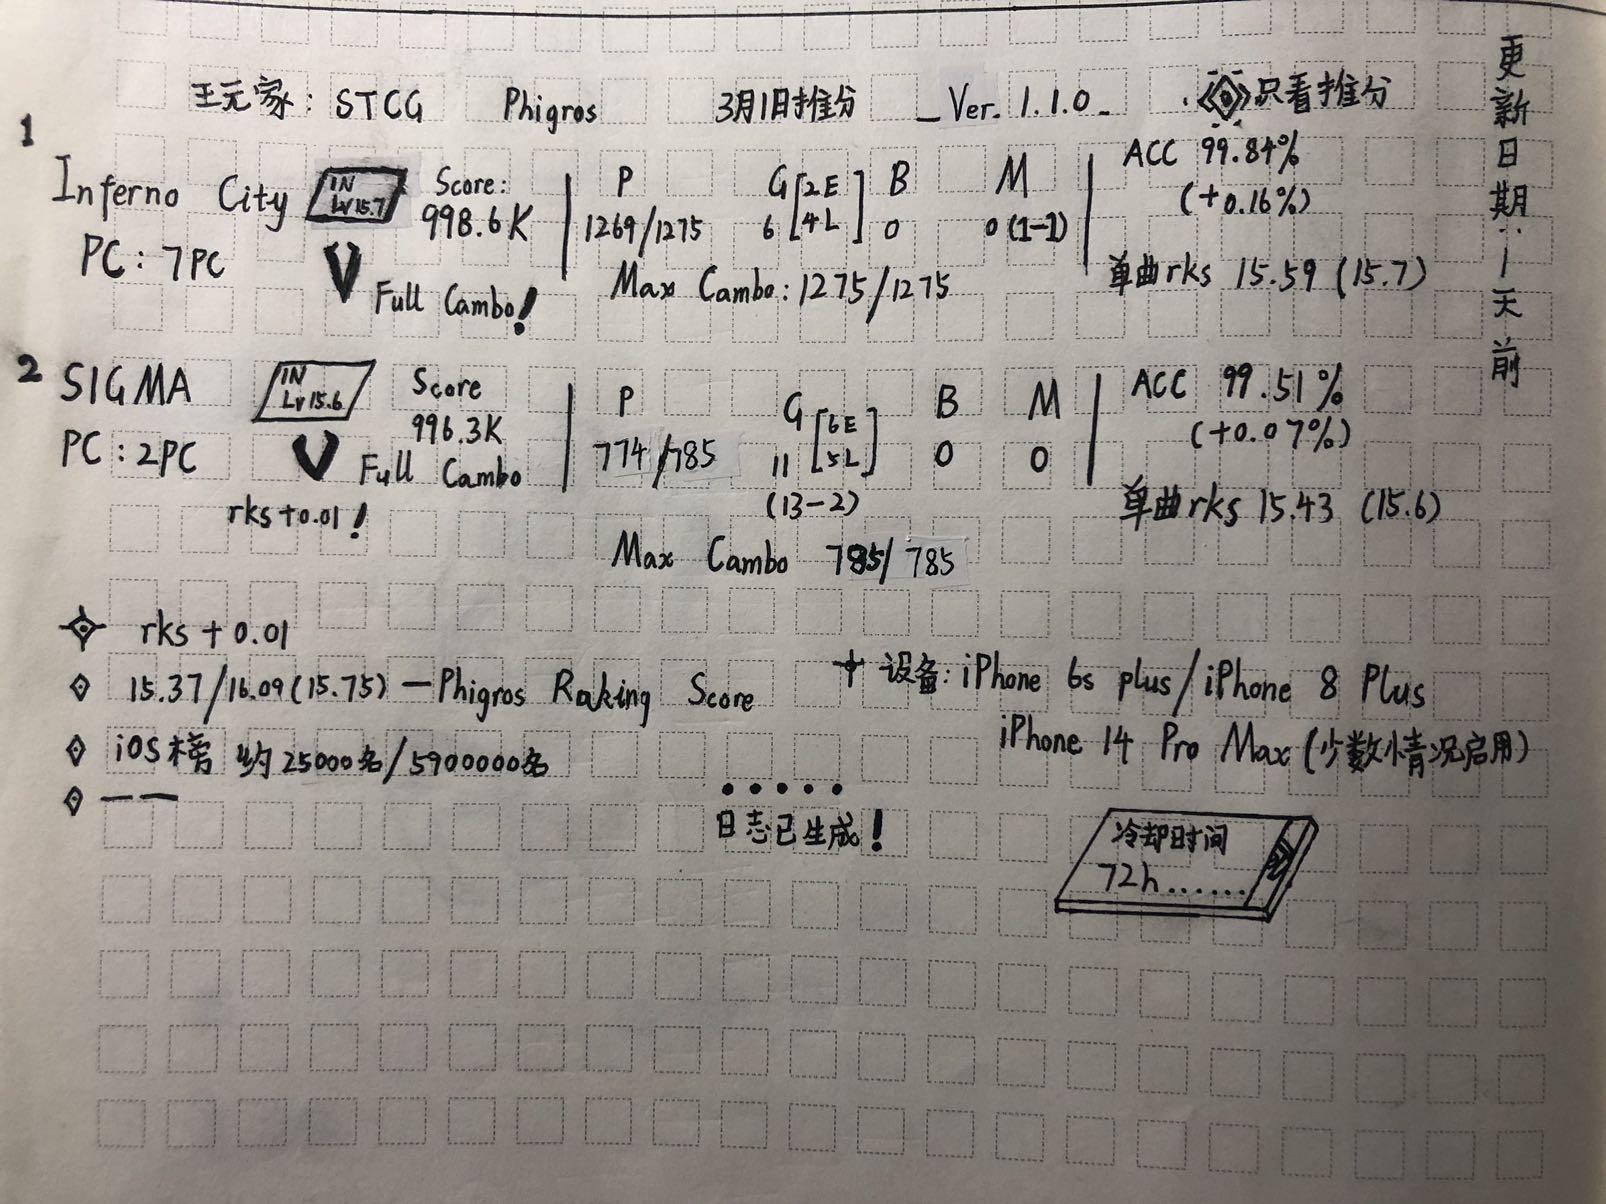 王元家: STCG Phigros 3月1日推分 _ Ver. 1.1.0 _ 只看推分
更新日期:1天前
1
Inferno City IN Lv 15.7 Score: 998.6K P 1269/1275 G 6 [2E 4L] B 0 M 0 (1-1) ACC 99.84% (+0.16%)
PC: 7PC V Full Cambo! Max Cambo: 1275/1275 单曲rks 15.59 (15.7)
2
SIGMA IN Lv 15.6 Score 996.3K P 774/785 G 11 [6E 5L] (13-2) B 0 M 0 ACC 99.51% (+0.07%)
PC: 2PC V Full Cambo 单曲rks 15.43 (15.6)
rks+0.01!
Max Cambo 785/785
rks + 0.01
15.37/16.09(15.75) — Phigros Raking Score
iOS榜 约25000名/5900000名
— —
设备: iPhone 6s plus/iPhone 8 Plus
iPhone 14 Pro Max (少数情况启用)
.....
日志已生成!
冷却时间
72h......